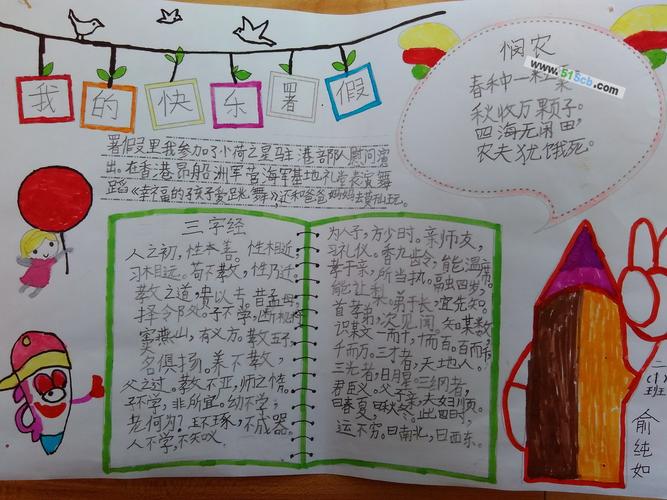 我的快乐署假
悯农
春种一粒粟
www.515cb.com
秋收万颗子。
四海无闲田,
农夫犹饿死。
署假里我参加了小荷之星驻港部队慰问演
出。在香港昂船洲军营海军基地礼堂表演舞
蹈《幸福的孩子爱跳舞》还和爸爸妈妈去
三字经
人之初,性本善。性相近,
习相远。苟不教,性乃迁。
教之道,贵以专。昔孟母,
择邻处。子不学,断机杼
窦燕山,有义方。教五子,
名俱扬。养不教,
父之过。教不严,师之惰。
子不学,非所宜。幼不学,
老何为?玉不琢,不成器。
人不学,不知义
为人子,方少时。亲师友,
习礼仪。香九龄,能温席。
孝于亲,所当执。融四岁,
能让梨。弟于长,宜先知。
首孝弟,次见闻,知某数,
识某文一而十,十而百。百而千,
千而万。三才者,天地人。
三光者,日月星。三纲者,
君臣义。父子亲,夫妇顺。
曰春夏曰秋冬。此四时,
运不穷。曰南北,曰西东。
二
(1)
班
俞
纯
如